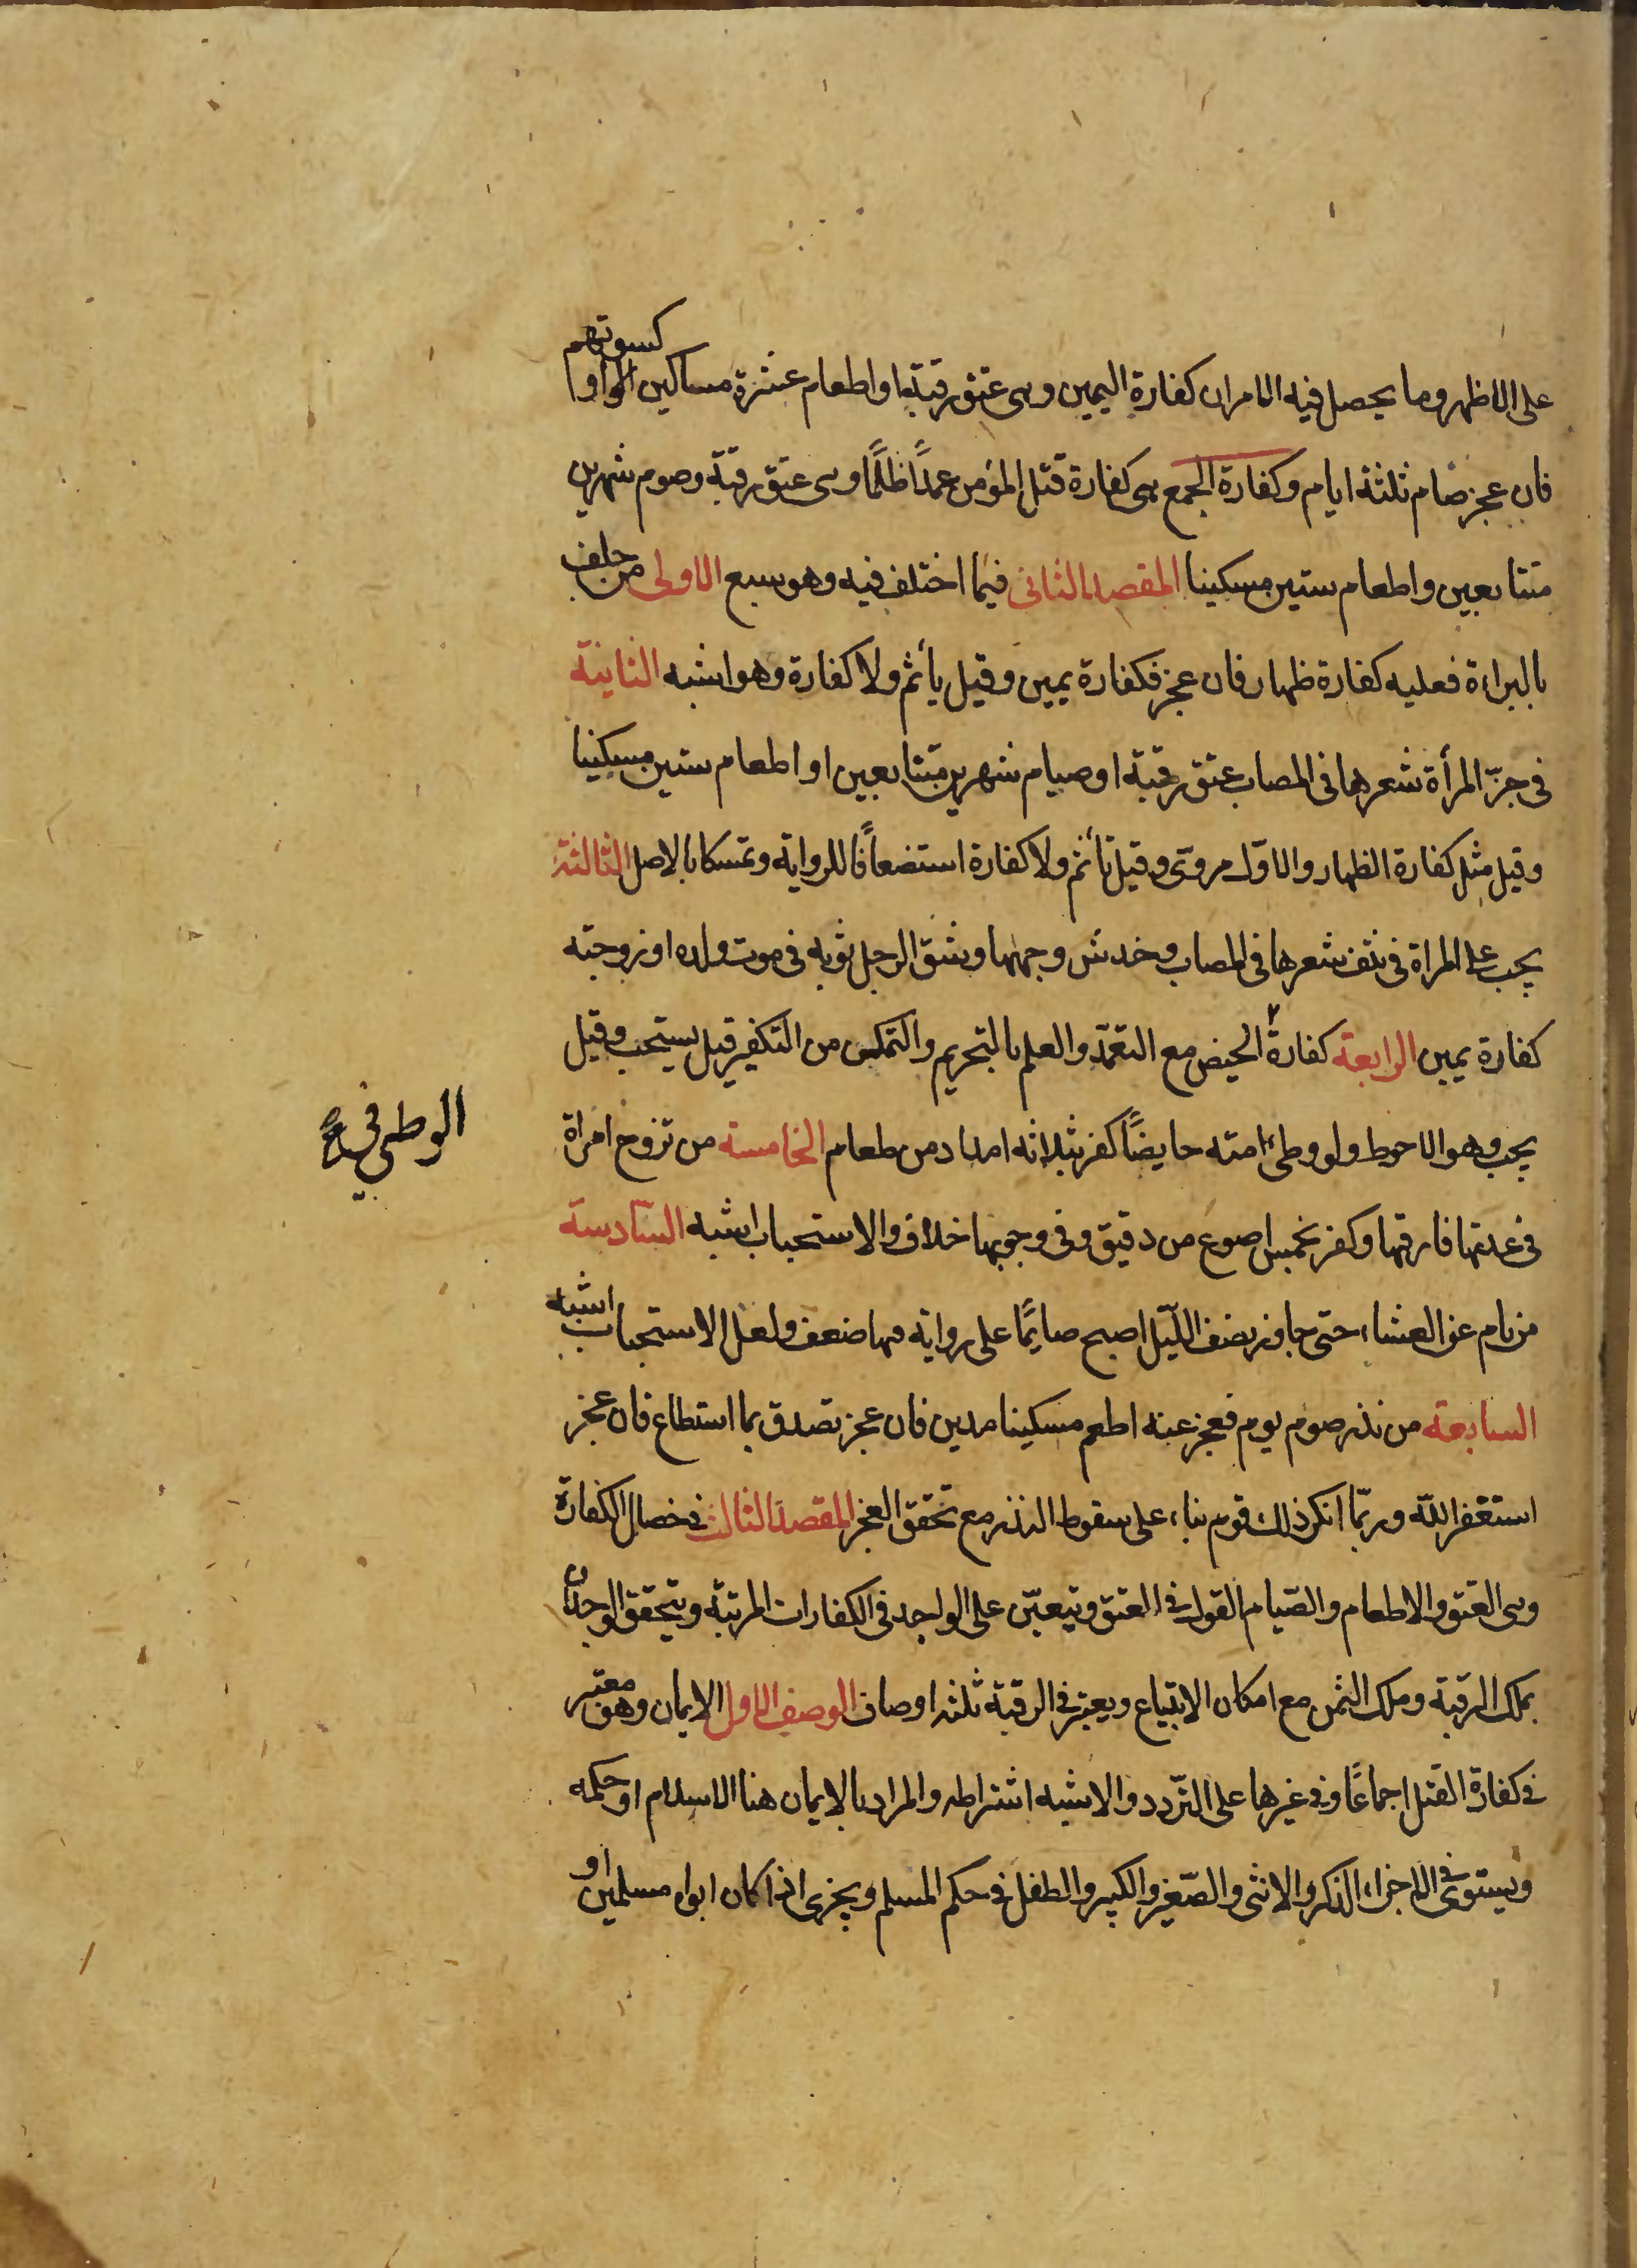 على الاظهر وما يحصل فيه الامران كفارة اليمين وهى عتق رقبة او اطعام عشرة مساكين او كسوتهم
فان عجز صام ثلثة ايام وكفارة الجمع هى كفارة قتل المؤمن عمدًا ظلمًا وهى عتق رقبة وصوم شهرين
متتابعين واطعام ستين مسكينا المقصد الثانى فيما اختلف فيه وهو سبع الاولى من حلف
بالبراءة فعليه كفارة ظهار فان عجز فكفارة يمين وقيل يأثم ولا كفارة وهو اشبه الثانية
فى جزّ المرأة شعرها فى المصاب عتق رقبة او صيام شهرين متتابعين او اطعام ستين مسكينا
وقيل مثل كفارة الظهار والاول مروى وقيل تأثم ولا كفارة استضعافًا للرواية وتمسكا بالاصل الثالثة
يجب على المراة فى نتف شعرها فى المصاب وخدش وجهها وشق الرجل ثوبه فى موت ولده او زوجته
كفارة يمين الرابعة كفارة الحيض مع التعمّد والعلم بالتحريم والتمكن من التكفير قيل يستحب وقيل
الوطى في
يجب وهو الاحوط ولو وطئ امته حايضًا كفر بثلاثه امداد من طعام الخامسة من تزوج امراة
فى عدتها فارقها وكفر بخمس اصوع من دقيق وفى وجوبها خلاف والاستحباب اشبه السّادسة
من نام عن العشاء حتى جاوز نصف اللّيل اصبح صايمًا على رواية فيها ضعف ولعل الاستحباب اشبه
السابعة من نذر صوم يوم فعجز عنه اطعم مسكينا مدين فان عجز تصدق بما استطاع فان عجز
استغفر اللّه وربّما انكر ذلك قوم بناء على سقوط النذر مع تحقق العجز المقصد الثالث فى خصال الكفارة
وهى العتق والاطعام والصّيام القول فى العتق ويتعيّن على الواجد فى الكفارات المرتبة ويتحقق الوجدان
بملك الرقبة وملك الثمن مع امكان الابتياع ويعتبر فى الرقبة ثلثه اوصاف الوصف الاول الايمان وهو معتبر
فى كفارة القتل اجماعًا وفى غيرها على التّردد والاشبه اشتراطه والمراد بالايمان هنا الاسلام او حكمه
ويستوى فى الاجزاء الذكر والانثى والصّغير والكبير والطفل فى حكم المسلم ويجزى اذا كان ابواه مسلمين او